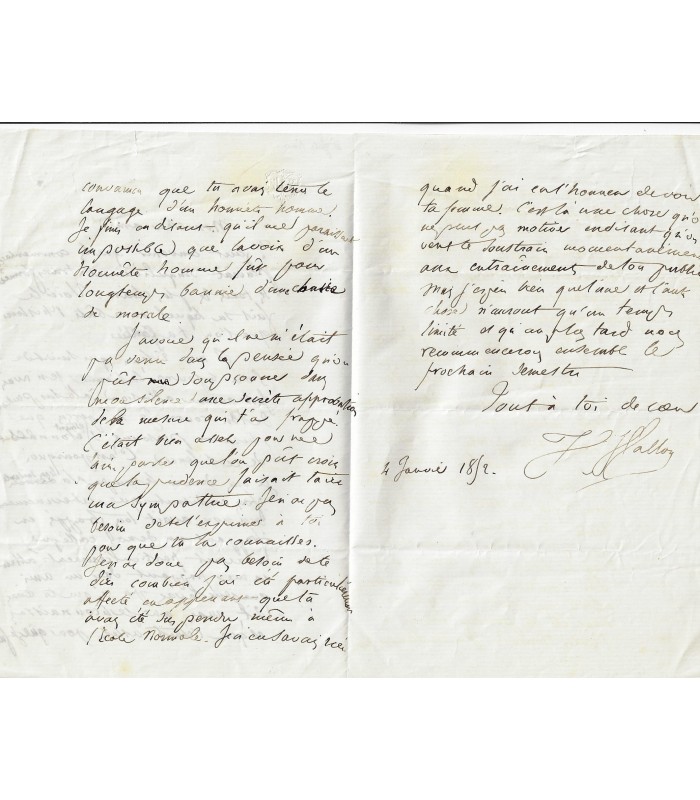 convaincu que tu avais tenu le
langage d'un honnête homme.
Je finis en disant qu'il me paraissait
impossible que la voix d'un
honnête homme fût pour
longtemps bannie d'une chaire
de morale.
J'avoue qu'il ne m'était
pas venu dans la pensée qu'on
pût soupçonner dans
mon silence une secrète approbation
de la mesure qui t'a frappé.
C'était bien assez pour me
que l'on pût croire
que la prudence faisait taire
ma sympathie. Je n'ai pas
besoin de te l'exprimer à toi
pour que tu la connaisses.
Je n'ai donc pas besoin de te
dire combien j'ai été particulièrement
affecté en apprenant que tu
avais été suspendu même à
l'école Normale. Je n'en savais rien
quand j'ai eu l'honneur de voir
ta femme. C'est là une chose qu'on
ne peut pas motiver en disant qu'on
veut te soustraire momentanément
aux entraînements de ton public
mais j'espère bien que l'une et l'autre
chose n'auront qu'un temps
limité et qu'un plus tard nous
recommencerons ensemble le
prochain semestre
Tout à toi de cœur
H Wallon
2 Janvier 1852.